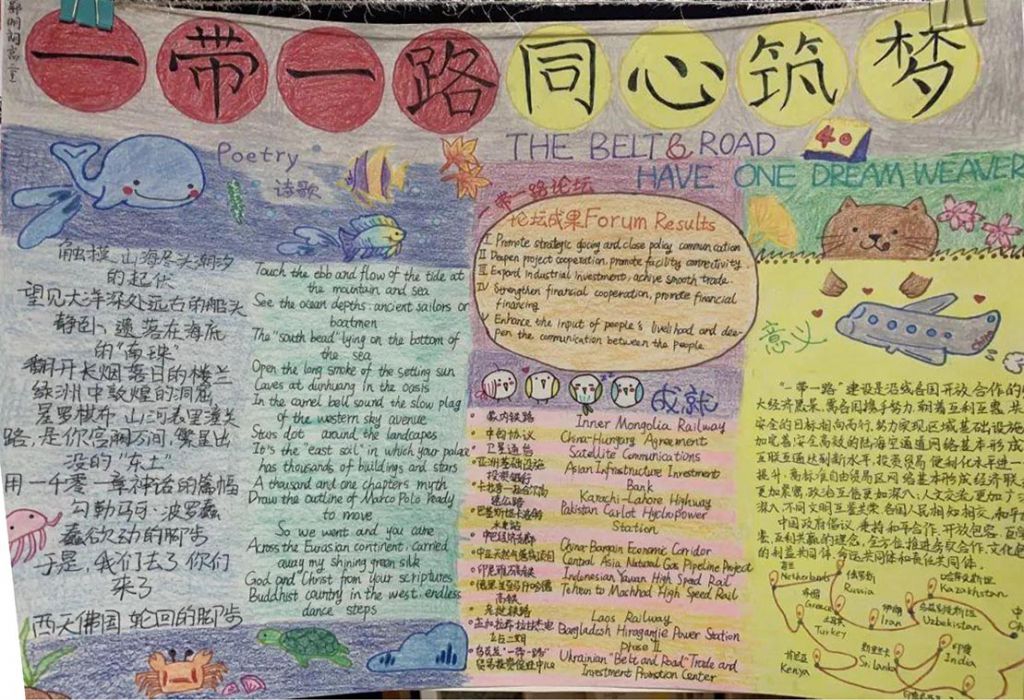 一带一路同心筑梦
THE BELT & ROAD
HAVE ONE DREAM WEAVER
40
Poetry
诗歌
触摸、山海尽头潮汐
的起伏
望见大洋深处远古的船头
静卧、遗落在海底
的“南珠”
翻开长烟落日的楼兰
绿洲中敦煌的洞窟
星罗棋布、山河表里潼关
路,是你宫阙万间,繁星出
没的“东土”
用一千零一章神话的篇幅
勾勒马可·波罗蠢
蠢欲动的脚步
于是,我们去了你们
来了
西天佛国 轮回的脚步
Touch the ebb and flow of the tide at
the mountain and sea
See the ocean depths, ancient sailors or
boatmen
The "south bead" lying on the bottom of
the sea
Open the long smoke of the setting sun
Caves at dunhuang in the oasis
In the carrel bell sound the slow plag
of the western sky avenue
Stars dot around the landcapes
It's the "east soil" in which your palace
has thousands of buildings and stars
A thousand and one chapters myth
Draw the outline of Marco Polo Ready
to move
So we went and you came
Across the Eurasian continent, carried
away my shining green silk
God and Christ from your scriptures
Buddhist country in the west, endless
dance steps
一带一路论坛
论坛成果 Forum Results
I Promote strategic docing and close policy communication
II Deepen project cooperation, promote facility connectivity
III Expord industrial investment, achive smooth trade
IV Strengthen financial cooperation, promote financial
financing
V Enhance the input of people's livelihood and dee-
pen the communication between the people
成就
蒙内铁路 Inner Mongolia Railway
中匈协议 China-Hungary Agreement
卫星通信 Satellite Communications
亚洲基础设施 Asian Infrastructure Investment
投资银行 Bank
Karachi-Lahore Highway
Pakistan Carlot Hydropower
水电站 Station
中巴经济走廊 China-Bangain Economic Corridor
中亚天然气管线项目 Central Asia Natural Gas Pipeline Project
印尼雅万高铁 Indonesian Yawan High Speed Rail
Tehern to Machhad High Speed Rail
高铁
老挝铁路 Laos Railway
Bangladesh Hiragamjie Power Station
Phase II
Ukrainian "Belt and Road" Trade and
贸易投资促进中心 Investment Promotion Center
意义
China
“一带一路”建设是沿线各国开放合作的
大经济愿景,需各国携手努力,朝着互利互惠、共
安全的目标相向而行,努力实现区域基础设施
加完善,安全高效的陆海空通道网络基本形成
互联互通达到新水平,投资贸易便利化水平进一
提升,高标准自由贸易区网络基本形成,经济联
更加紧密,政治互信更加深入;人文交流更加
深入,不同文明互鉴共荣,各国人民相知相交,和平
中国政府倡议,秉持和平合作、开放包容、
鉴、互利共赢的理念,全方位推进务实合作,
的利益共同体、命运共同体和责任共同体。
荷兰
Netherlands
俄罗斯
Russia
哈萨克斯坦
Kazakhstan
希腊
Greece
土耳其
Turkey
伊朗
Iran
乌兹别克斯坦
Uzbekistan
肯尼亚
Kenya
斯里兰卡
Sri Lanka
印度
India